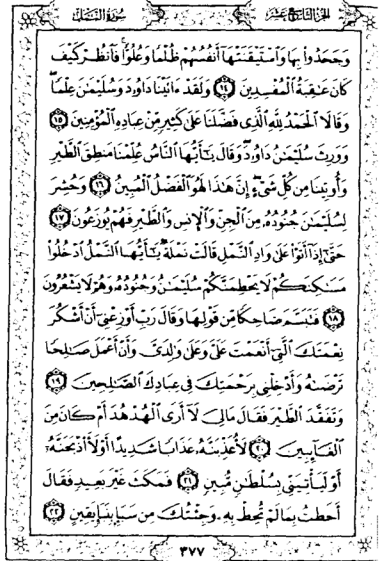 الجزء التاسع عشر سورة النمل
وَجَحَدُوا۟ بِهَا وَٱسْتَيْقَنَتْهَآ أَنفُسُهُمْ ظُلْمًا وَعُلُوًّا ۚ فَٱنظُرْ كَيْفَ
كَانَ عَـٰقِبَةُ ٱلْمُفْسِدِينَ ١٤ وَلَقَدْ ءَاتَيْنَا دَاوُۥدَ وَسُلَيْمَـٰنَ عِلْمًا ۖ
وَقَالَا ٱلْحَمْدُ لِلَّهِ ٱلَّذِى فَضَّلَنَا عَلَىٰ كَثِيرٍ مِّنْ عِبَادِهِ ٱلْمُؤْمِنِينَ ١٥
وَوَرِثَ سُلَيْمَـٰنُ دَاوُۥدَ ۖ وَقَالَ يَـٰٓأَيُّهَا ٱلنَّاسُ عُلِّمْنَا مَنطِقَ ٱلطَّيْرِ
وَأُوتِينَا مِن كُلِّ شَىْءٍ ۖ إِنَّ هَـٰذَا لَهُوَ ٱلْفَضْلُ ٱلْمُبِينُ ١٦ وَحُشِرَ
لِسُلَيْمَـٰنَ جُنُودُهُۥ مِنَ ٱلْجِنِّ وَٱلْإِنسِ وَٱلطَّيْرِ فَهُمْ يُوزَعُونَ ١٧
حَتَّىٰٓ إِذَآ أَتَوْا۟ عَلَىٰ وَادِ ٱلنَّمْلِ قَالَتْ نَمْلَةٌ يَـٰٓأَيُّهَا ٱلنَّمْلُ ٱدْخُلُوا۟
مَسَـٰكِنَكُمْ لَا يَحْطِمَنَّكُمْ سُلَيْمَـٰنُ وَجُنُودُهُۥ وَهُمْ لَا يَشْعُرُونَ
١٨ فَتَبَسَّمَ ضَاحِكًا مِّن قَوْلِهَا وَقَالَ رَبِّ أَوْزِعْنِىٓ أَنْ أَشْكُرَ
نِعْمَتَكَ ٱلَّتِىٓ أَنْعَمْتَ عَلَىَّ وَعَلَىٰ وَٰلِدَىَّ وَأَنْ أَعْمَلَ صَـٰلِحًا
تَرْضَىٰهُ وَأَدْخِلْنِى بِرَحْمَتِكَ فِى عِبَادِكَ ٱلصَّـٰلِحِينَ ١٩
وَتَفَقَّدَ ٱلطَّيْرَ فَقَالَ مَالِىَ لَآ أَرَى ٱلْهُدْهُدَ أَمْ كَانَ مِنَ
ٱلْغَآئِبِينَ ٢٠ لَأُعَذِّبَنَّهُۥ عَذَابًا شَدِيدًا أَوْ لَأَا۟ذْبَحَنَّهُۥٓ
أَوْ لَيَأْتِيَنِّى بِسُلْطَـٰنٍ مُّبِينٍ ٢١ فَمَكَثَ غَيْرَ بَعِيدٍ فَقَالَ
أَحَطتُ بِمَا لَمْ تُحِطْ بِهِۦ وَجِئْتُكَ مِن سَبَإٍۭ بِنَبَإٍ يَقِينٍ ٢٢
٣٧٧